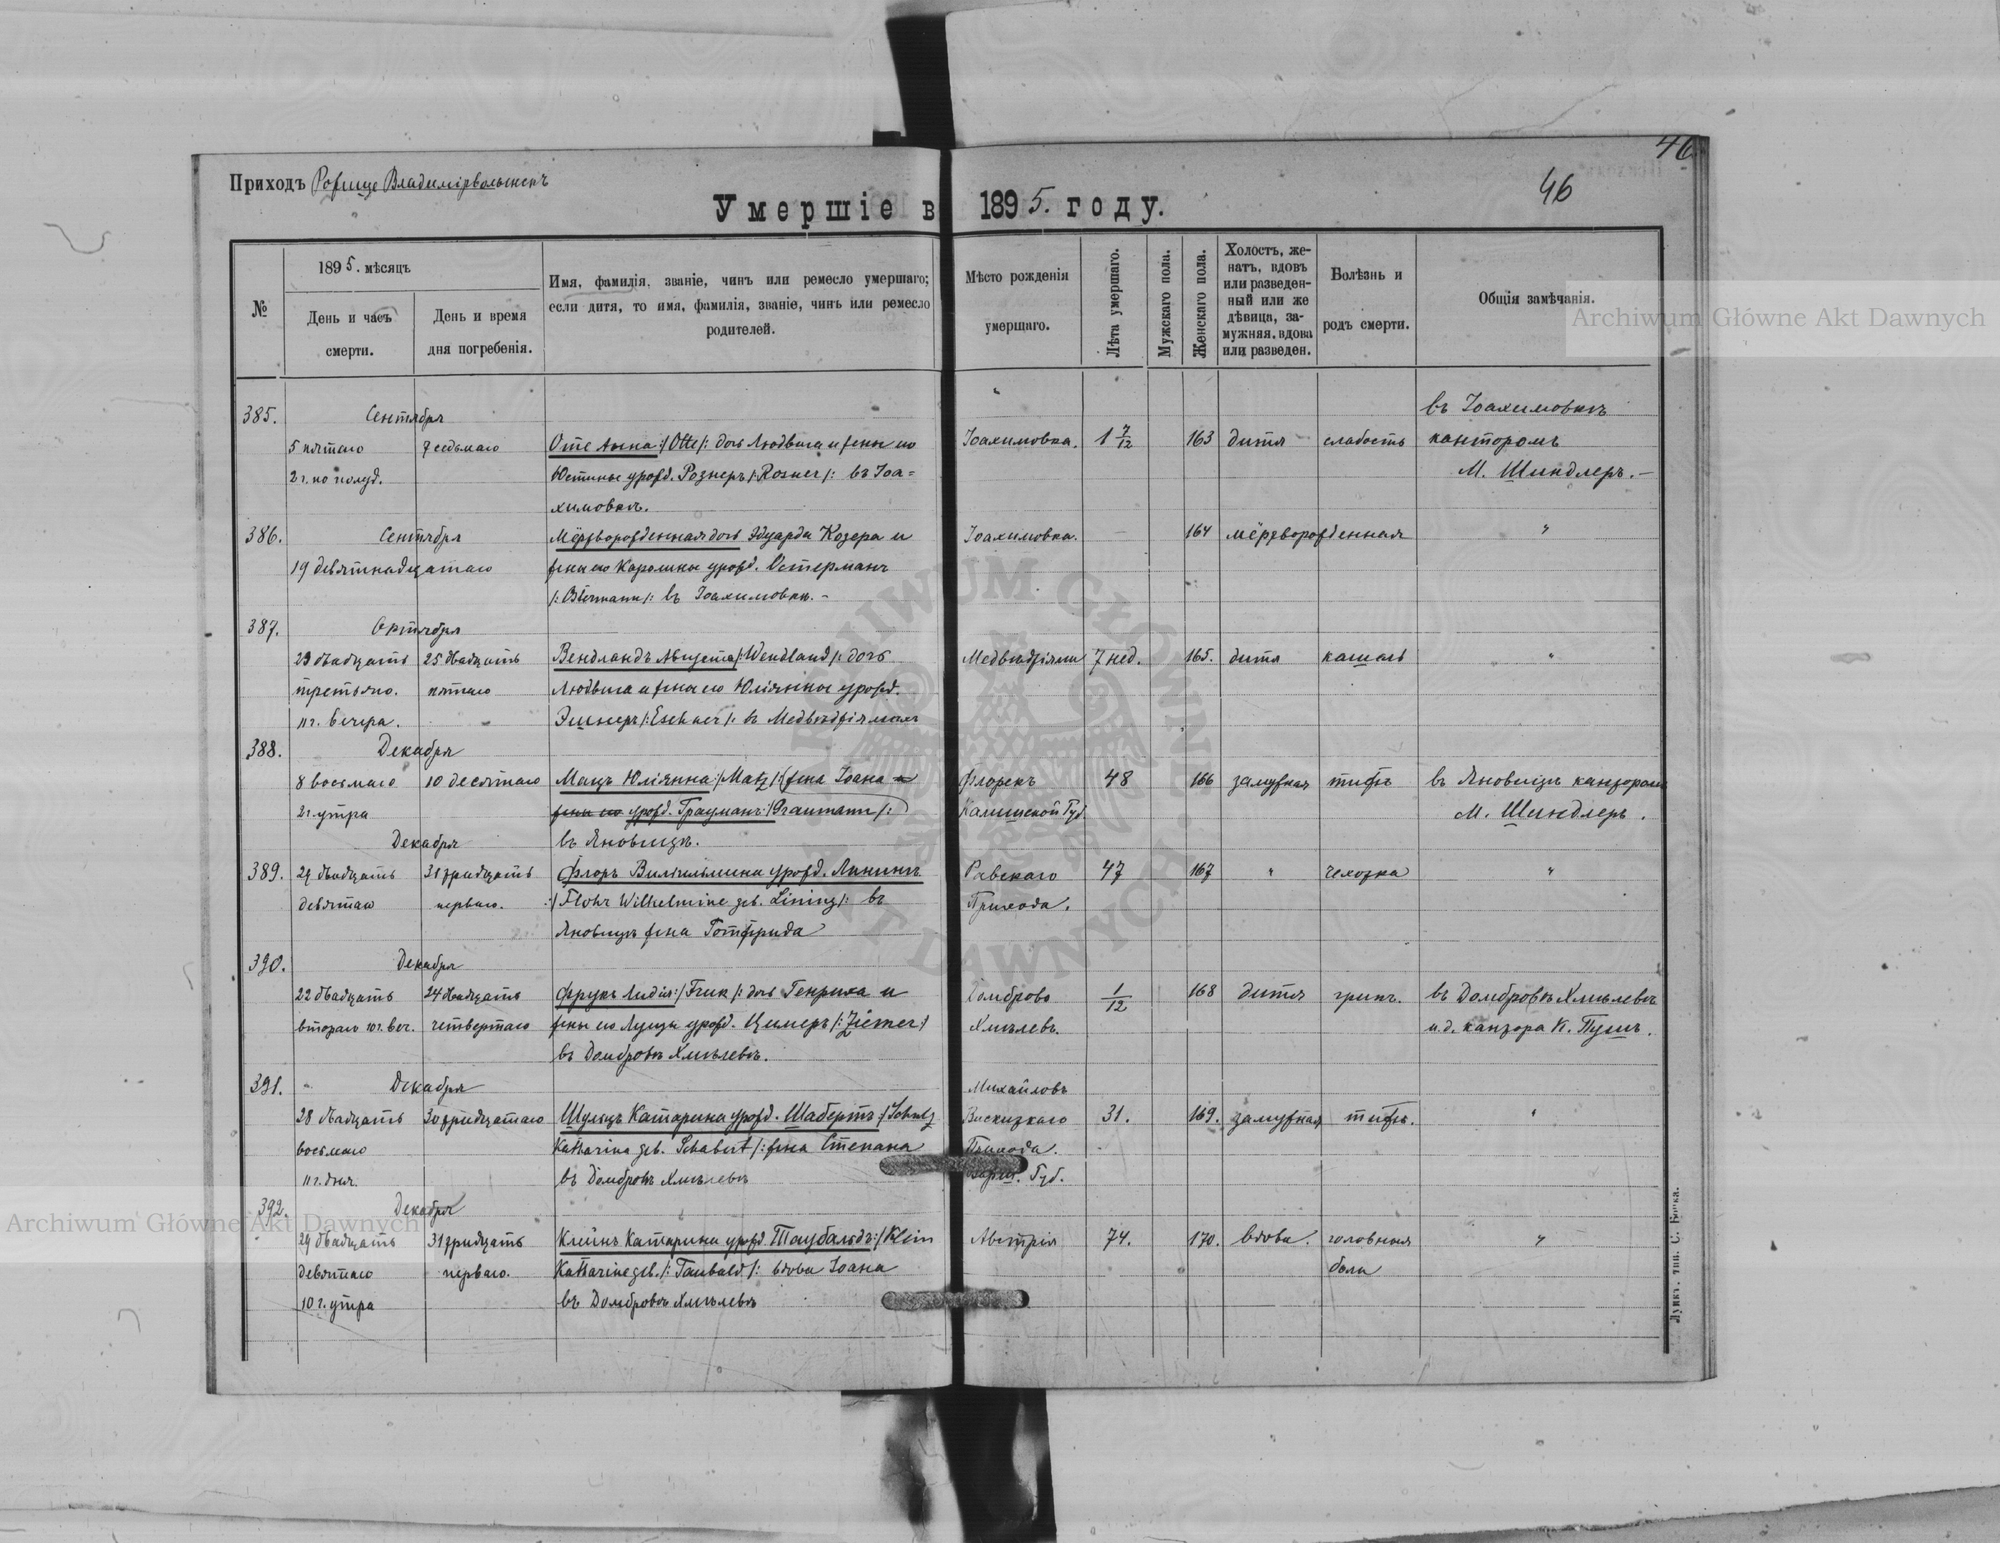 46
Приходъ Рожище Владимірволынскъ
46
Умершіе въ 1895. году.
№
1895. мѣсяцъ
День и часъ смерти.
День и время дня погребенія.
Имя, фамилія, званіе, чинъ или ремесло умершаго;
если дитя, то имя, фамилія, званіе, чинъ или ремесло
родителей.
Мѣсто рожденія
умершаго.
Лѣта умершаго.
Мужскаго пола.
Женскаго пола.
Холостъ, же-
натъ, вдовъ
или разведен-
ный или же
дѣвица, за-
мужняя, вдова
или разведен.
Болѣзнь и
родъ смерти.
Общія замѣчанія.
Archiwum Główne Akt Dawnych
385. Сентября въ Іоахимовкѣ
5 пятаго 7 седьмаго Отте Анна :/Otte/: дочь Людвига и жены его Іоахимовка. 1 7/12 163 дитя слабость канторомъ
2 г. по полуд. Юстины урожд. Рознеръ /:Rosner/: въ Іоа= М. Шиндлеръ. —
химовкѣ.
386. Сентября Мёртворожденная дочь Эдуарда Козера и Іоахимовка. 164 мёртворожденная "
19 девятнадцатаго жены его Каролины урожд. Остерманъ
/:Ostermann/: въ Іоахимовкѣ. –
387. Октября
23 двадцать 25 двадцать Вендландъ Августа /:Wendland/: дочь Медвѣдзіямы 7 нед. 165. дитя кашель "
третьяго. пятаго Людвига и жены его Юліянны урожд.
11 г. вечера. Эшнеръ /:Eschner/: въ Медвѣдзіямахъ
388. Декабря
8 восьмаго 10 десятаго Мацъ Юліянна :/Matz/: (жена Іоана и Флорекъ 48 166 замужняя тифъ въ Яновицѣ канторомъ
2 г. утра жены его урожд. Грауманъ :/Graumann/:) Калишской Губ. М. Шиндлеръ.
Декабря въ Яновицѣ.
389. 29 двадцать 31 тридцать Флоръ Вильгельмина урожд. Лининъ Равскаго 47 167 " чехотка "
девятаго перваго. :/Flohr Wilhelmine geb. Lining/: въ Прихода.
Яновицѣ жена Готфрида
390. Декабря
22 двадцать 24 двадцать Фрукъ Лидія :/Fruk/: дочь Генриха и Домброво 1/12 168 дитя грипъ. въ Домбровкѣ Хмѣлевкѣ
втораго 10 г. веч. четвертаго жены его Луизы урожд. Цимеръ /:Ziemer:/ Хмѣлевъ. и. д. кантора К. Пушъ.
въ Домбровкѣ Хмѣлевкѣ.
391. " Декабря Михайловъ
28 двадцать 30 тридцатаго Шульцъ Катарина урожд. Шабертъ :/Schulz Вискиткаго 31. 169. замужняя тифъ. "
восьмаго Katharina geb. Schabert/: жена Степана Прихода.
11 г. дня. въ Домбровкѣ Хмѣлевкѣ Варш. Губ.
392. Декабря
29 двадцать 31 тридцать Клейнъ Катарина урожд. Таубальдъ :/Klein Австрія 74. 170. вдова. головная "
девятаго перваго. Katharine geb./: Taubald/: вдова Іоана боли
10 г. утра въ Домбровкѣ Хмѣлевкѣ
Archiwum Główne Akt Dawnych
ARCHIWUM GŁÓWNE AKT DAWNYCH